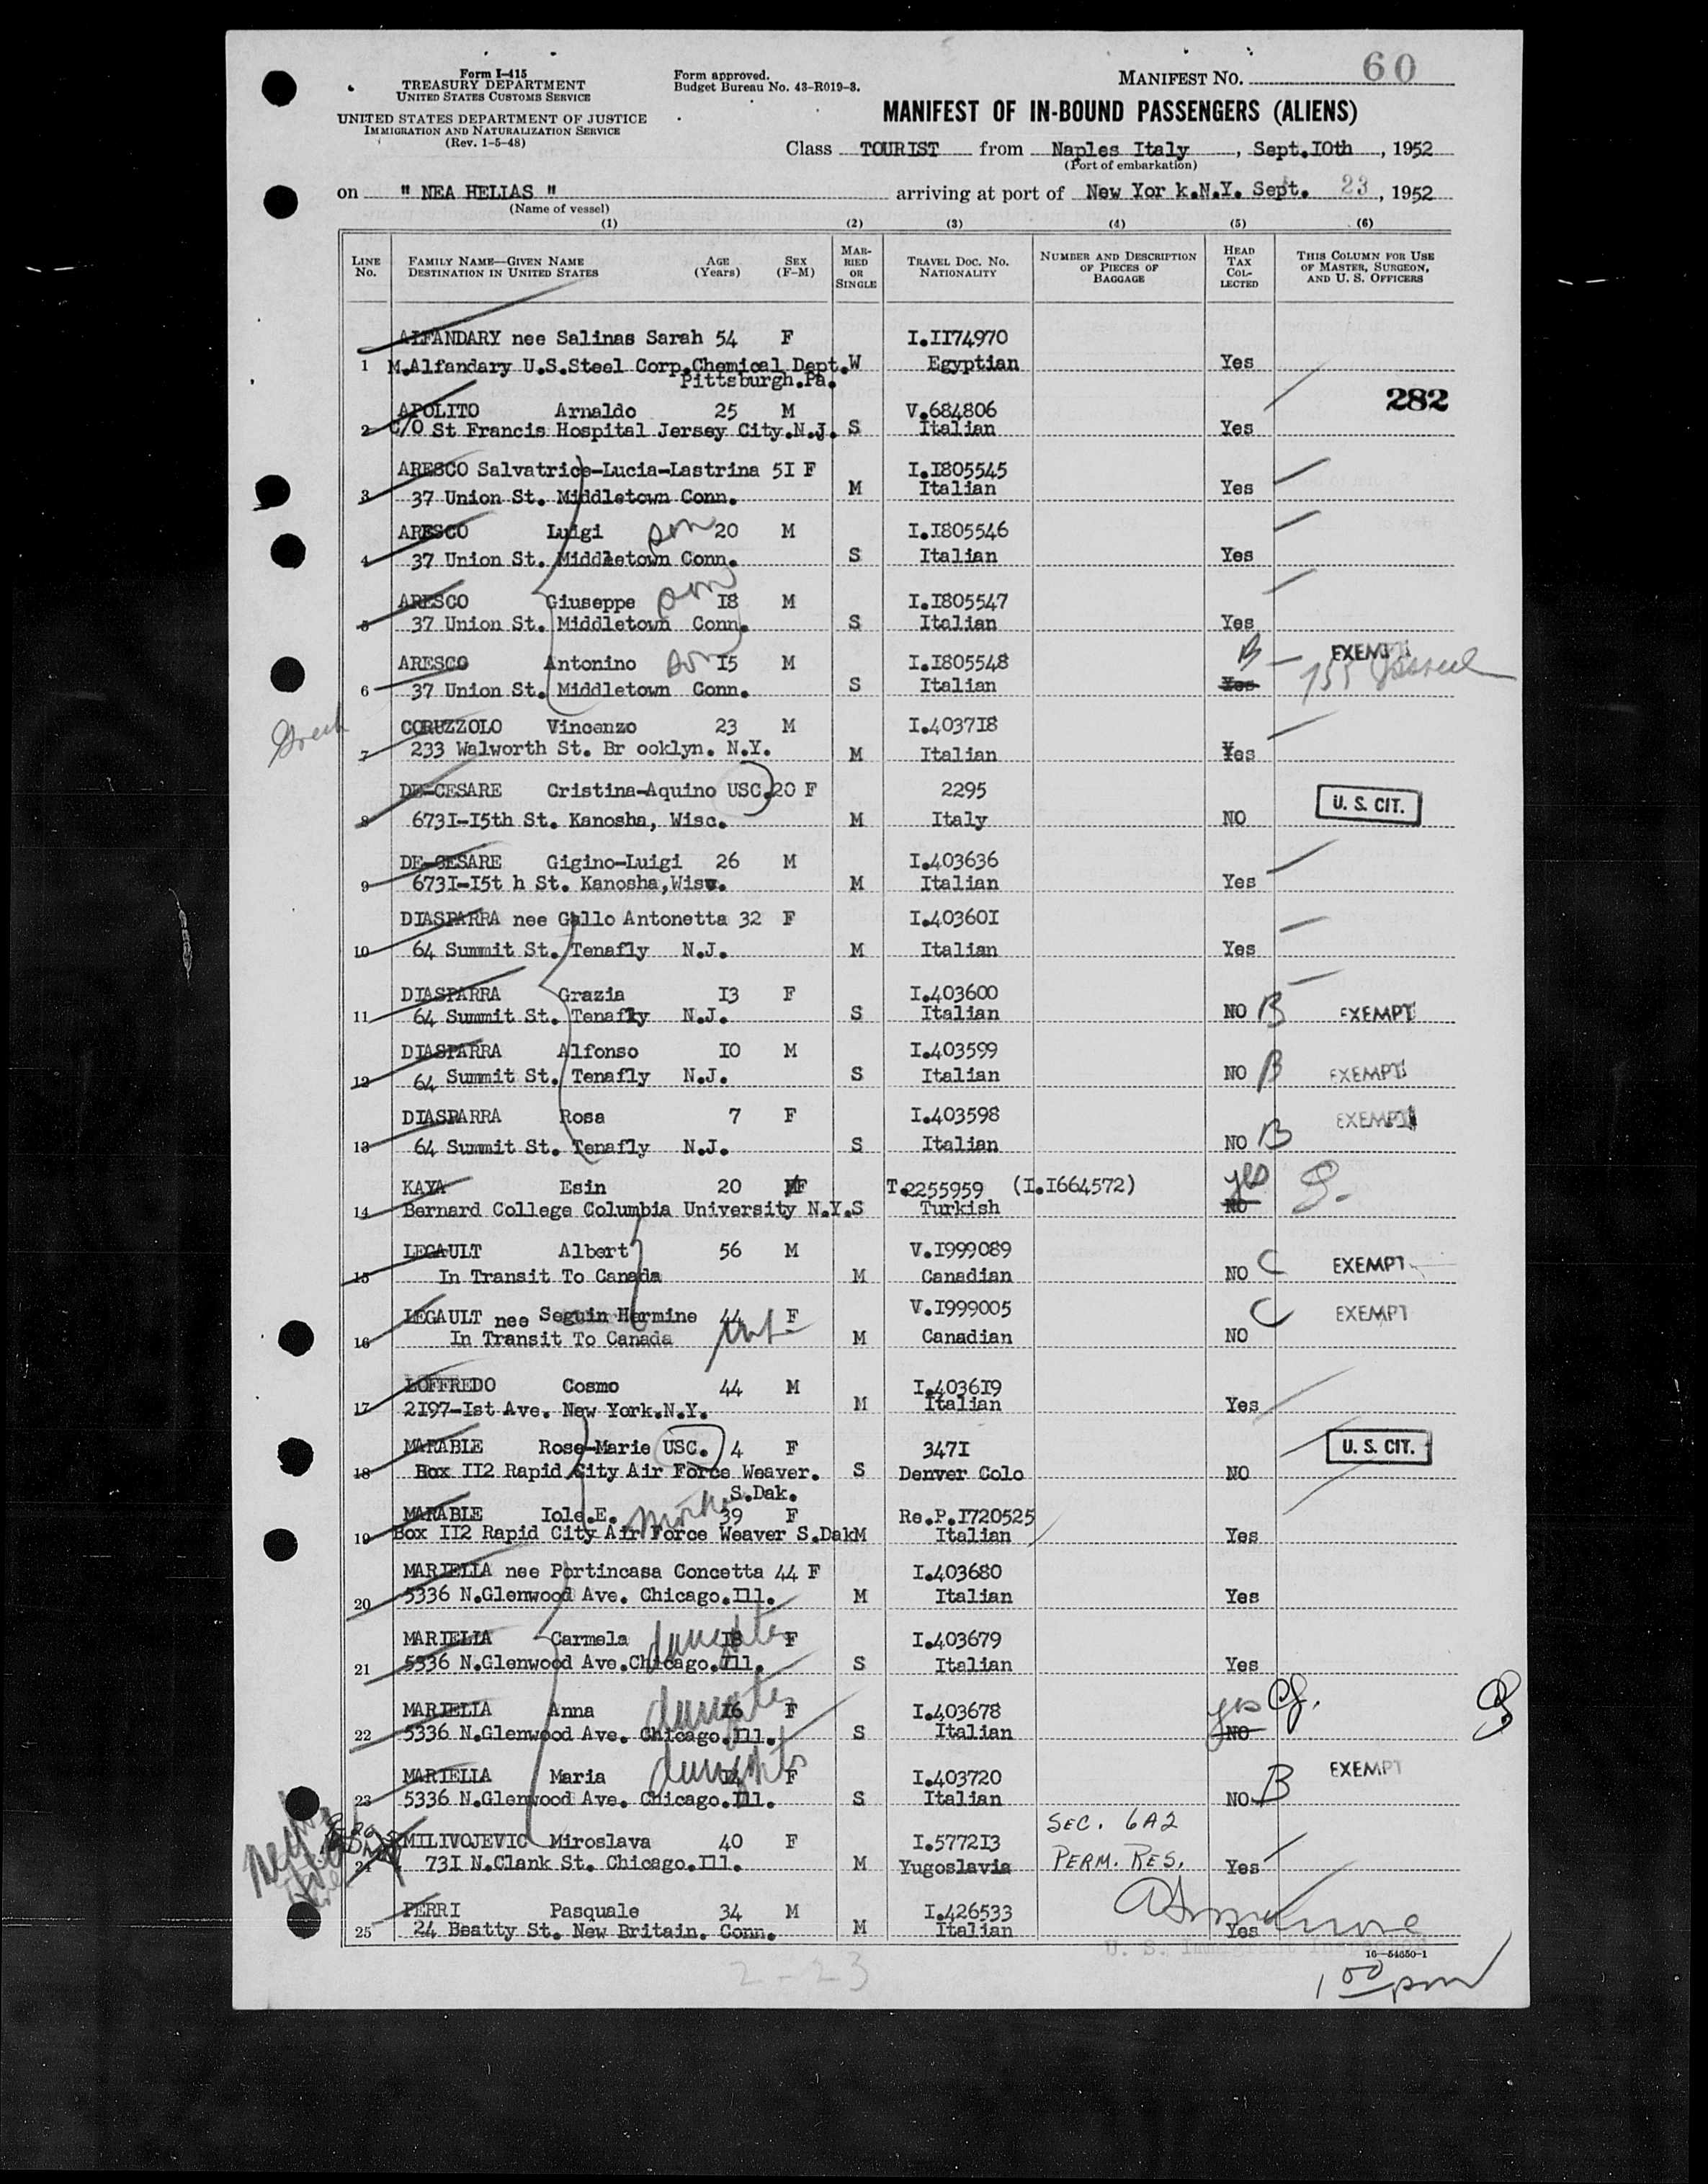 Form I-415
TREASURY DEPARTMENT
UNITED STATES CUSTOMS SERVICE
UNITED STATES DEPARTMENT OF JUSTICE
IMMIGRATION AND NATURALIZATION SERVICE
(Rev. 1-5-48)
Form approved.
Budget Bureau No. 43-R019-3.
MANIFEST NO. 60
MANIFEST OF IN-BOUND PASSENGERS (ALIENS)
Class TOURIST from Naples Italy, Sept.I0th, 1952
(Port of embarkation)
on " NEA HELIAS " arriving at port of New Yor k.N.Y. Sept. 23, 1952
(Name of vessel)
(1) (2) (3) (4) (5) (6)
LINE No. FAMILY NAME—GIVEN NAME DESTINATION IN UNITED STATES AGE (Years) SEX (F-M) MARRIED OR SINGLE TRAVEL DOC. NO. NATIONALITY NUMBER AND DESCRIPTION OF PIECES OF BAGGAGE HEAD TAX COLLECTED THIS COLUMN FOR USE OF MASTER, SURGEON, AND U. S. OFFICERS
ALFANDARY nee Salinas Sarah 54 F I.II74970
1 M.Alfandary U.S.Steel Corp.Chemical Dept. W Egyptian Yes
Pittsburgh.Pa.
282
APOLITO Arnaldo 25 M V.684806
2 C/O St Francis Hospital Jersey City.N.J. S Italian Yes
ARESCO Salvatrice-Lucia-Lastrina 5I F I.I805545
3 37 Union St. Middletown Conn. M Italian Yes
ARESCO Luigi son 20 M I.I805546
4 37 Union St. Middletown Conn. S Italian Yes
ARESCO Giuseppe son I8 M I.I805547
5 37 Union St. Middletown Conn. S Italian Yes
ARESCO Antonino son I5 M I.I805548 B EXEMPT
6 37 Union St. Middletown Conn. S Italian Yes
CORUZZOLO Vincenzo 23 M I.4037I8
7 233 Walworth St. Br ooklyn. N.Y. M Italian Yes
DE-CESARE Cristina-Aquino USC. 20 F 2295 U. S. CIT.
8 673I-I5th St. Kanosha, Wisc. M Italy NO
DE-CESARE Gigino-Luigi 26 M I.403636
9 673I-I5t h St. Kanosha,Wisc. M Italian Yes
DIASPARRA nee Gallo Antonetta 32 F I.40360I
10 64 Summit St. Tenafly N.J. M Italian Yes
DIASPARRA Grazia I3 F I.403600
11 64 Summit St. Tenafly N.J. S Italian NO B EXEMPT
DIASPARRA Alfonso I0 M I.403599
12 64 Summit St. Tenafly N.J. S Italian NO B EXEMPT
DIASPARRA Rosa 7 F I.403598 EXEMPT
13 64 Summit St. Tenafly N.J. S Italian NO B
KAYA Esin 20 F T.2255959 (I.I664572) yes
14 Bernard College Columbia University N.Y. S Turkish NO
LEGAULT Albert 56 M V.I999089
15 In Transit To Canada M Canadian NO C EXEMPT
LEGAULT nee Seguin Hermine 44 F V.I999005 C EXEMPT
16 In Transit To Canada M Canadian NO
LOFFREDO Cosmo 44 M I.4036I9
17 2I97-Ist Ave. New York.N.Y. M Italian Yes
MARABLE Rose-Marie USC. 4 F 347I U. S. CIT.
18 Box II2 Rapid City Air Force Weaver. S Denver Colo NO
S.Dak.
MARABLE Iole.E. mother 39 F Re.P.I720525
19 Box II2 Rapid City Air Force Weaver S.Dak M Italian Yes
MARIELLA nee Portincasa Concetta 44 F I.403680
20 5336 N.Glenwood Ave. Chicago.Ill. M Italian Yes
MARIELLA Carmela daughter I8 F I.403679
21 5336 N.Glenwood Ave.Chicago.Ill. S Italian Yes
MARIELLA Anna daughter I6 F I.403678 yes
22 5336 N.Glenwood Ave. Chicago.Ill. S Italian NO
MARIELLA Maria daughter I4 F I.403720 EXEMPT
23 5336 N.Glenwood Ave. Chicago.Ill. S Italian NO B
MILIVOJEVIC Miroslava 40 F I.5772I3 SEC. 6A2
24 73I N.Clank St. Chicago.Ill. M Yugoslavia PERM. RES. Yes
PERRI Pasquale 34 M I.426533
25 24 Beatty St. New Britain. Conn. M Italian Yes
U. S. Immigrant Inspector
16—54650-1
2-23
1 00 pm